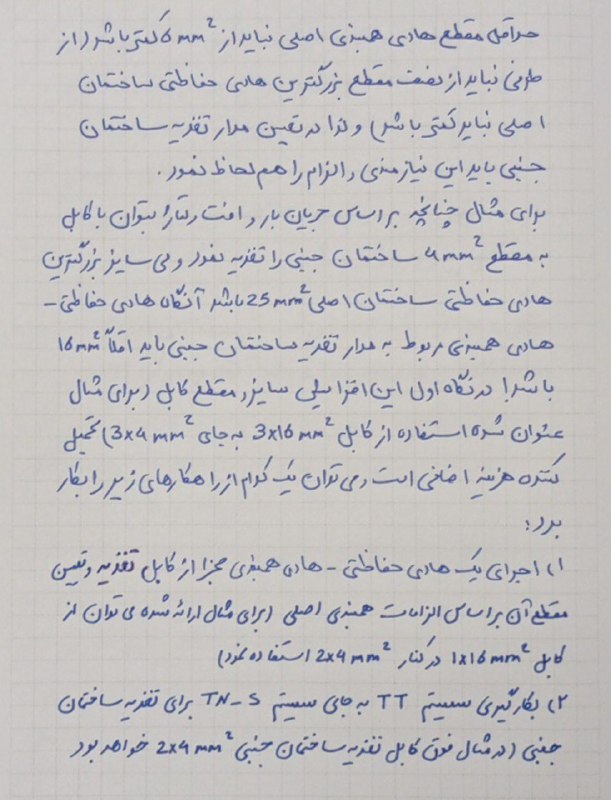 حداقل مقطع هادی همبندی اصلی نباید از 6 mm² کمتر باشد (از
طرفی نباید از نصف مقطع بزرگترین هادی حفاظتی ساختمان
اصلی نباید کمتر باشد) و لذا در تعیین مدار تغذیه ساختمان
جنبی باید این نیازمندی و الزام را هم لحاظ نمود.
برای مثال چنانچه بر اساس جریان بار و افت ولتاژ بتوان با کابل
به مقطع 4 mm² ساختمان جنبی را تغذیه نمود ولی سایز بزرگترین
هادی حفاظتی ساختمان اصلی 25 mm² باشد آنگاه هادی حفاظتی -
هادی همبندی مربوط به مدار تغذیه ساختمان جنبی باید اقلاً 16 mm²
باشد! در نگاه اول این افزایش سایز مقطع کابل (برای مثال
عنوان شده استفاده از کابل 3x16 mm² به جای 3x4 mm²) تحمیل
کننده هزینه اضافی است و می توان یک کدام از راهکارهای زیر را بکار
برد:
۱) اجرای یک هادی حفاظتی - هادی همبندی مجزا از کابل تغذیه و تعیین
مقطع آن بر اساس الزامات همبندی اصلی (برای مثال ارائه شده می توان از
کابل 1x16 mm² در کنار 2x4 mm² استفاده نمود)
۲) بکارگیری سیستم TT به جای سیستم TN-S برای تغذیه ساختمان
جنبی (در مثال فوق کابل تغذیه ساختمان جنبی 2x4 mm² خواهد بود